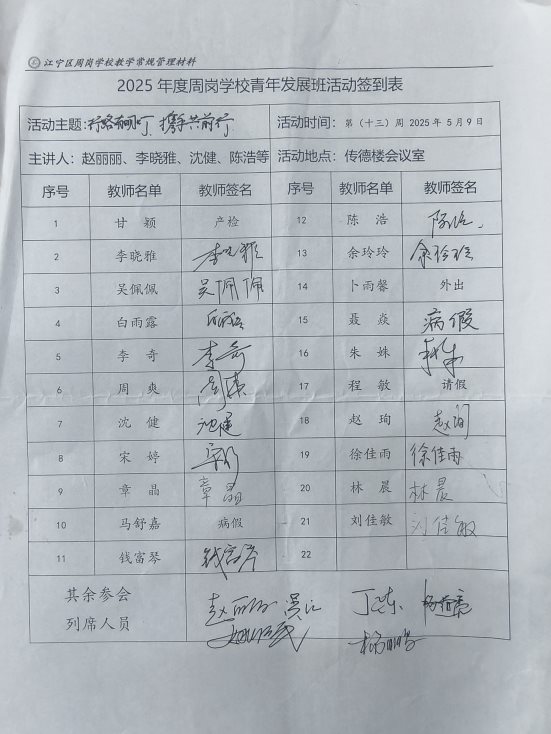 江宁区周岗学校教学常规管理材料
2025 年度周岗学校青年发展班活动签到表
活动主题: 携手共前行
活动时间: 第（十三）周 2025 年 5 月 9 日
主讲人：赵丽丽、李晓雅、沈健、陈浩等
活动地点：传德楼会议室
序号 教师名单 教师签名 序号 教师名单 教师签名
1 甘颖 产检 12 陈浩 陈浩
2 李晓雅 李晓雅 13 余玲玲 余玲玲
3 吴佩佩 吴佩佩 14 卜雨馨 外出
4 白雨露 白雨露 15 聂焱 病假
5 李奇 李奇 16 朱姝 朱姝
6 周爽 周爽 17 程敏 请假
7 沈健 沈健 18 赵珣 赵珣
8 宋婷 宋婷 19 徐佳雨 徐佳雨
9 章晶 章晶 20 林晨 林晨
10 马舒嘉 病假 21 刘佳敏 刘佳敏
11 钱富琴 钱富琴 22
其余参会
列席人员
赵丽丽